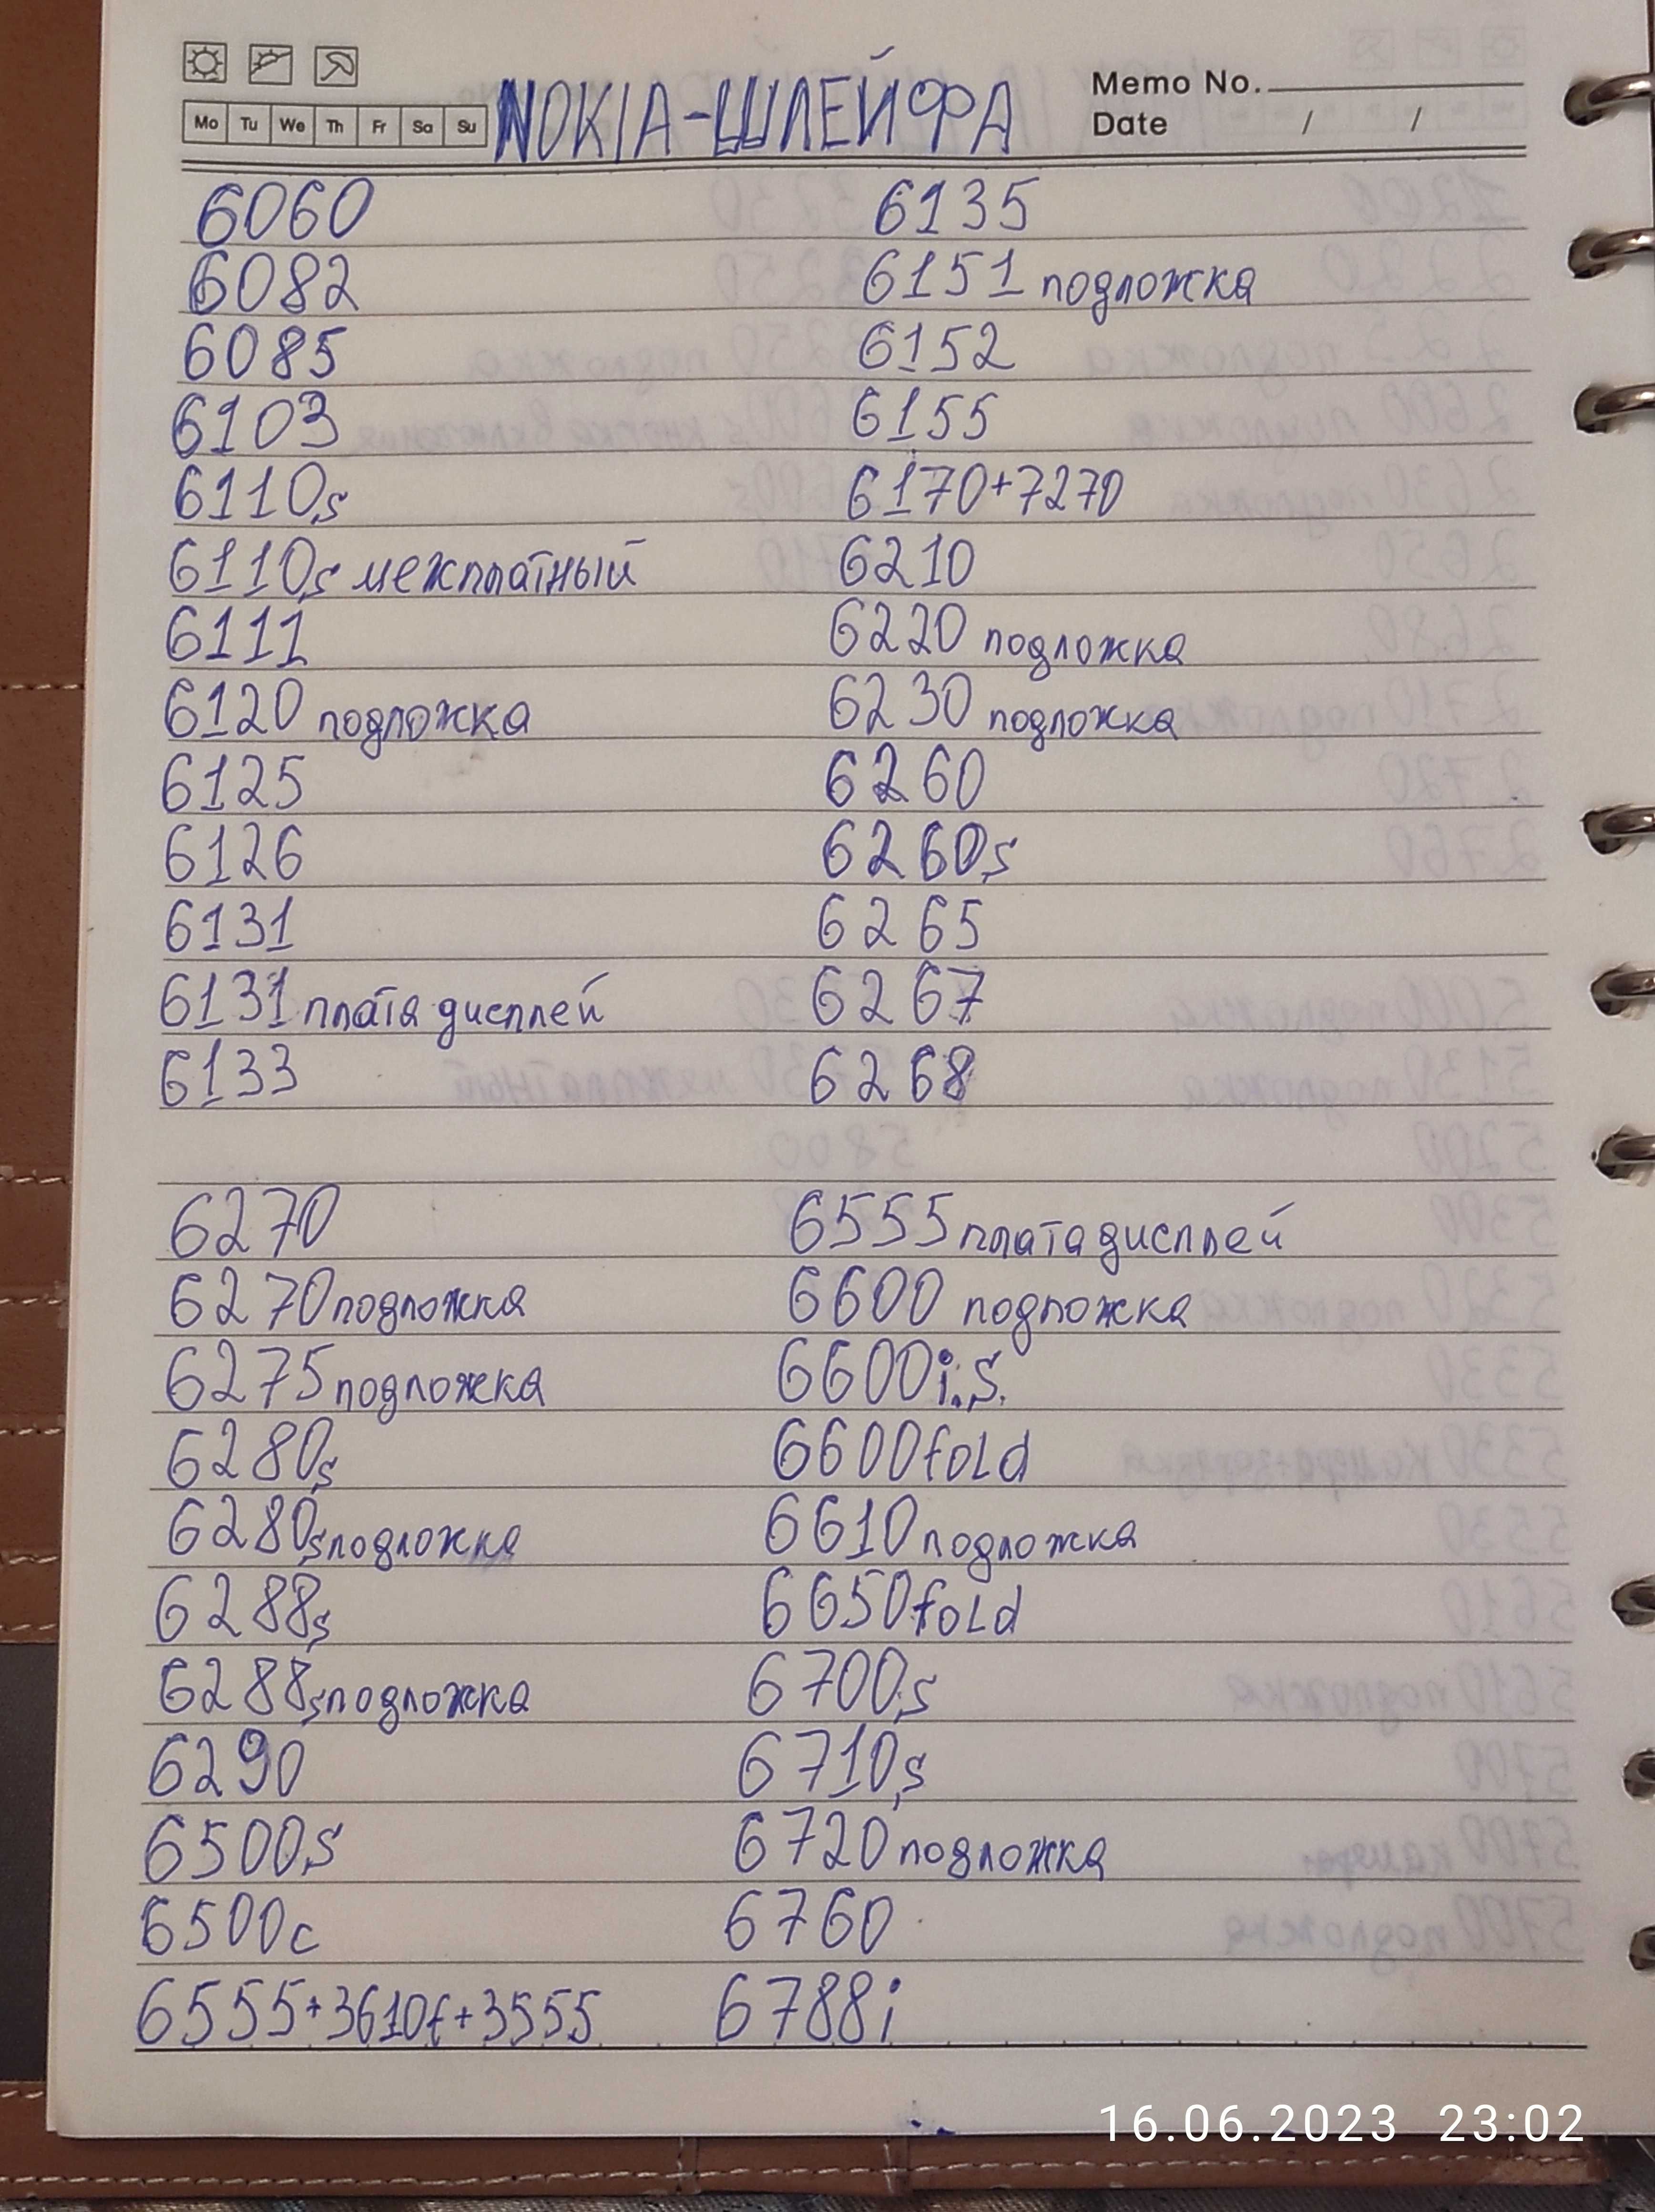 Mo Tu We Th Fr Sa Su
NOKIA-ШЛЕЙФА
Memo No.
Date / /
6060
6082
6085
6103
6110s
6110s межплатный
6111
6120 подложка
6125
6126
6131
6131 плата дисплей
6133
6135
6151 подложка
6152
6155
6170+7270
6210
6220 подложка
6230 подложка
6260
6260s
6265
6267
6268
6270
6270 подложка
6275 подложка
6280s
6280s подложка
6288s
6288s подложка
6290
6500s
6500c
6555+3610f+3555
6555 плата дисплей
6600 подложка
6600i.s.
6600fold
6610 подложка
6650fold
6700s
6710s
6720 подложка
6760
6788i
16.06.2023 23:02